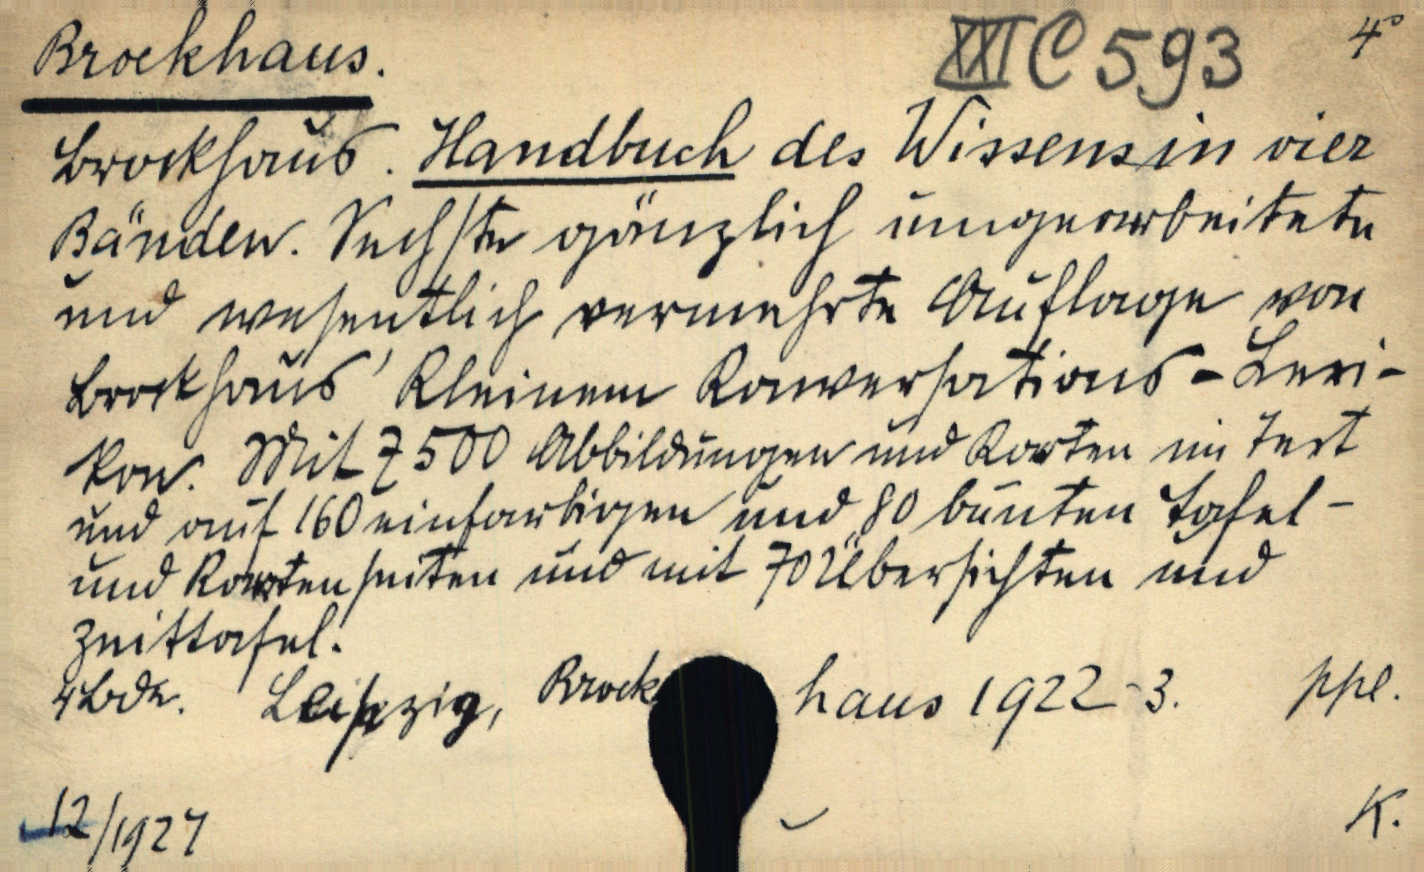 Brockhaus.
XXI C 593
4°
Brockhaus. Handbuch des Wissens in vier
Bänden. Sechste gänzlich umgearbeitete
und wesentlich vermehrte Auflage von
Brockhaus' Kleinem Konversations-Lexi-
kon. Mit 7500 Abbildungen und Karten im Text
und auf 160 einfarbigen und 80 bunten Tafel-
und Kartenseiten und mit 70 Übersichten und
Zeittafel.
4 Bde. Leipzig, Brockhaus 1922-3. ppl.
12/1927
K.